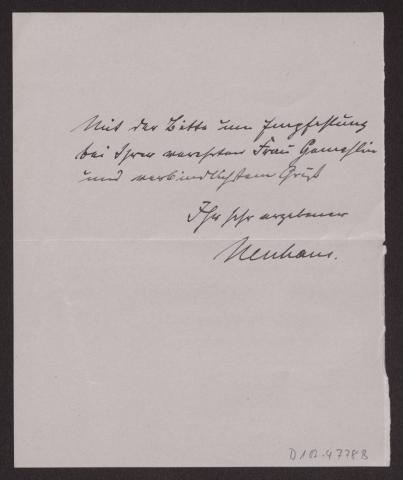 Mit der Bitte um Empfehlung
bei Ihrer verehrten Frau Gemahlin
und verbindlichstem Gruß
Ihr sehr ergebener
Neuhaus.
D 102-4778B